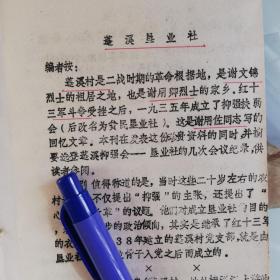 莲溪垦业社
编者按：
莲溪村是二战时期的革命根据地，是谢文锦
烈士的祖居之地，也是谢用卿烈士的家乡。红十
三军斗争受挫之后，一九三五年成立了抑强扶弱
会（后改名为贫民垦业社）。这是谢用佐同志写的
回忆文章。本刊在发表这份珍贵资料的同时，并摘
要选登莲溪抑强会——垦业社的几次会议纪录，供
读者
别值得称道的是，当时这些二十岁左右的农
不仅提出“抑强”的主张，还提出了“
的议题。他们对成立垦业社
步的政治倾向，其实是继承了红十三军
38年建立的莲溪村党支部，就是由
垦业社 骨干入党之后而成立的。
× ×